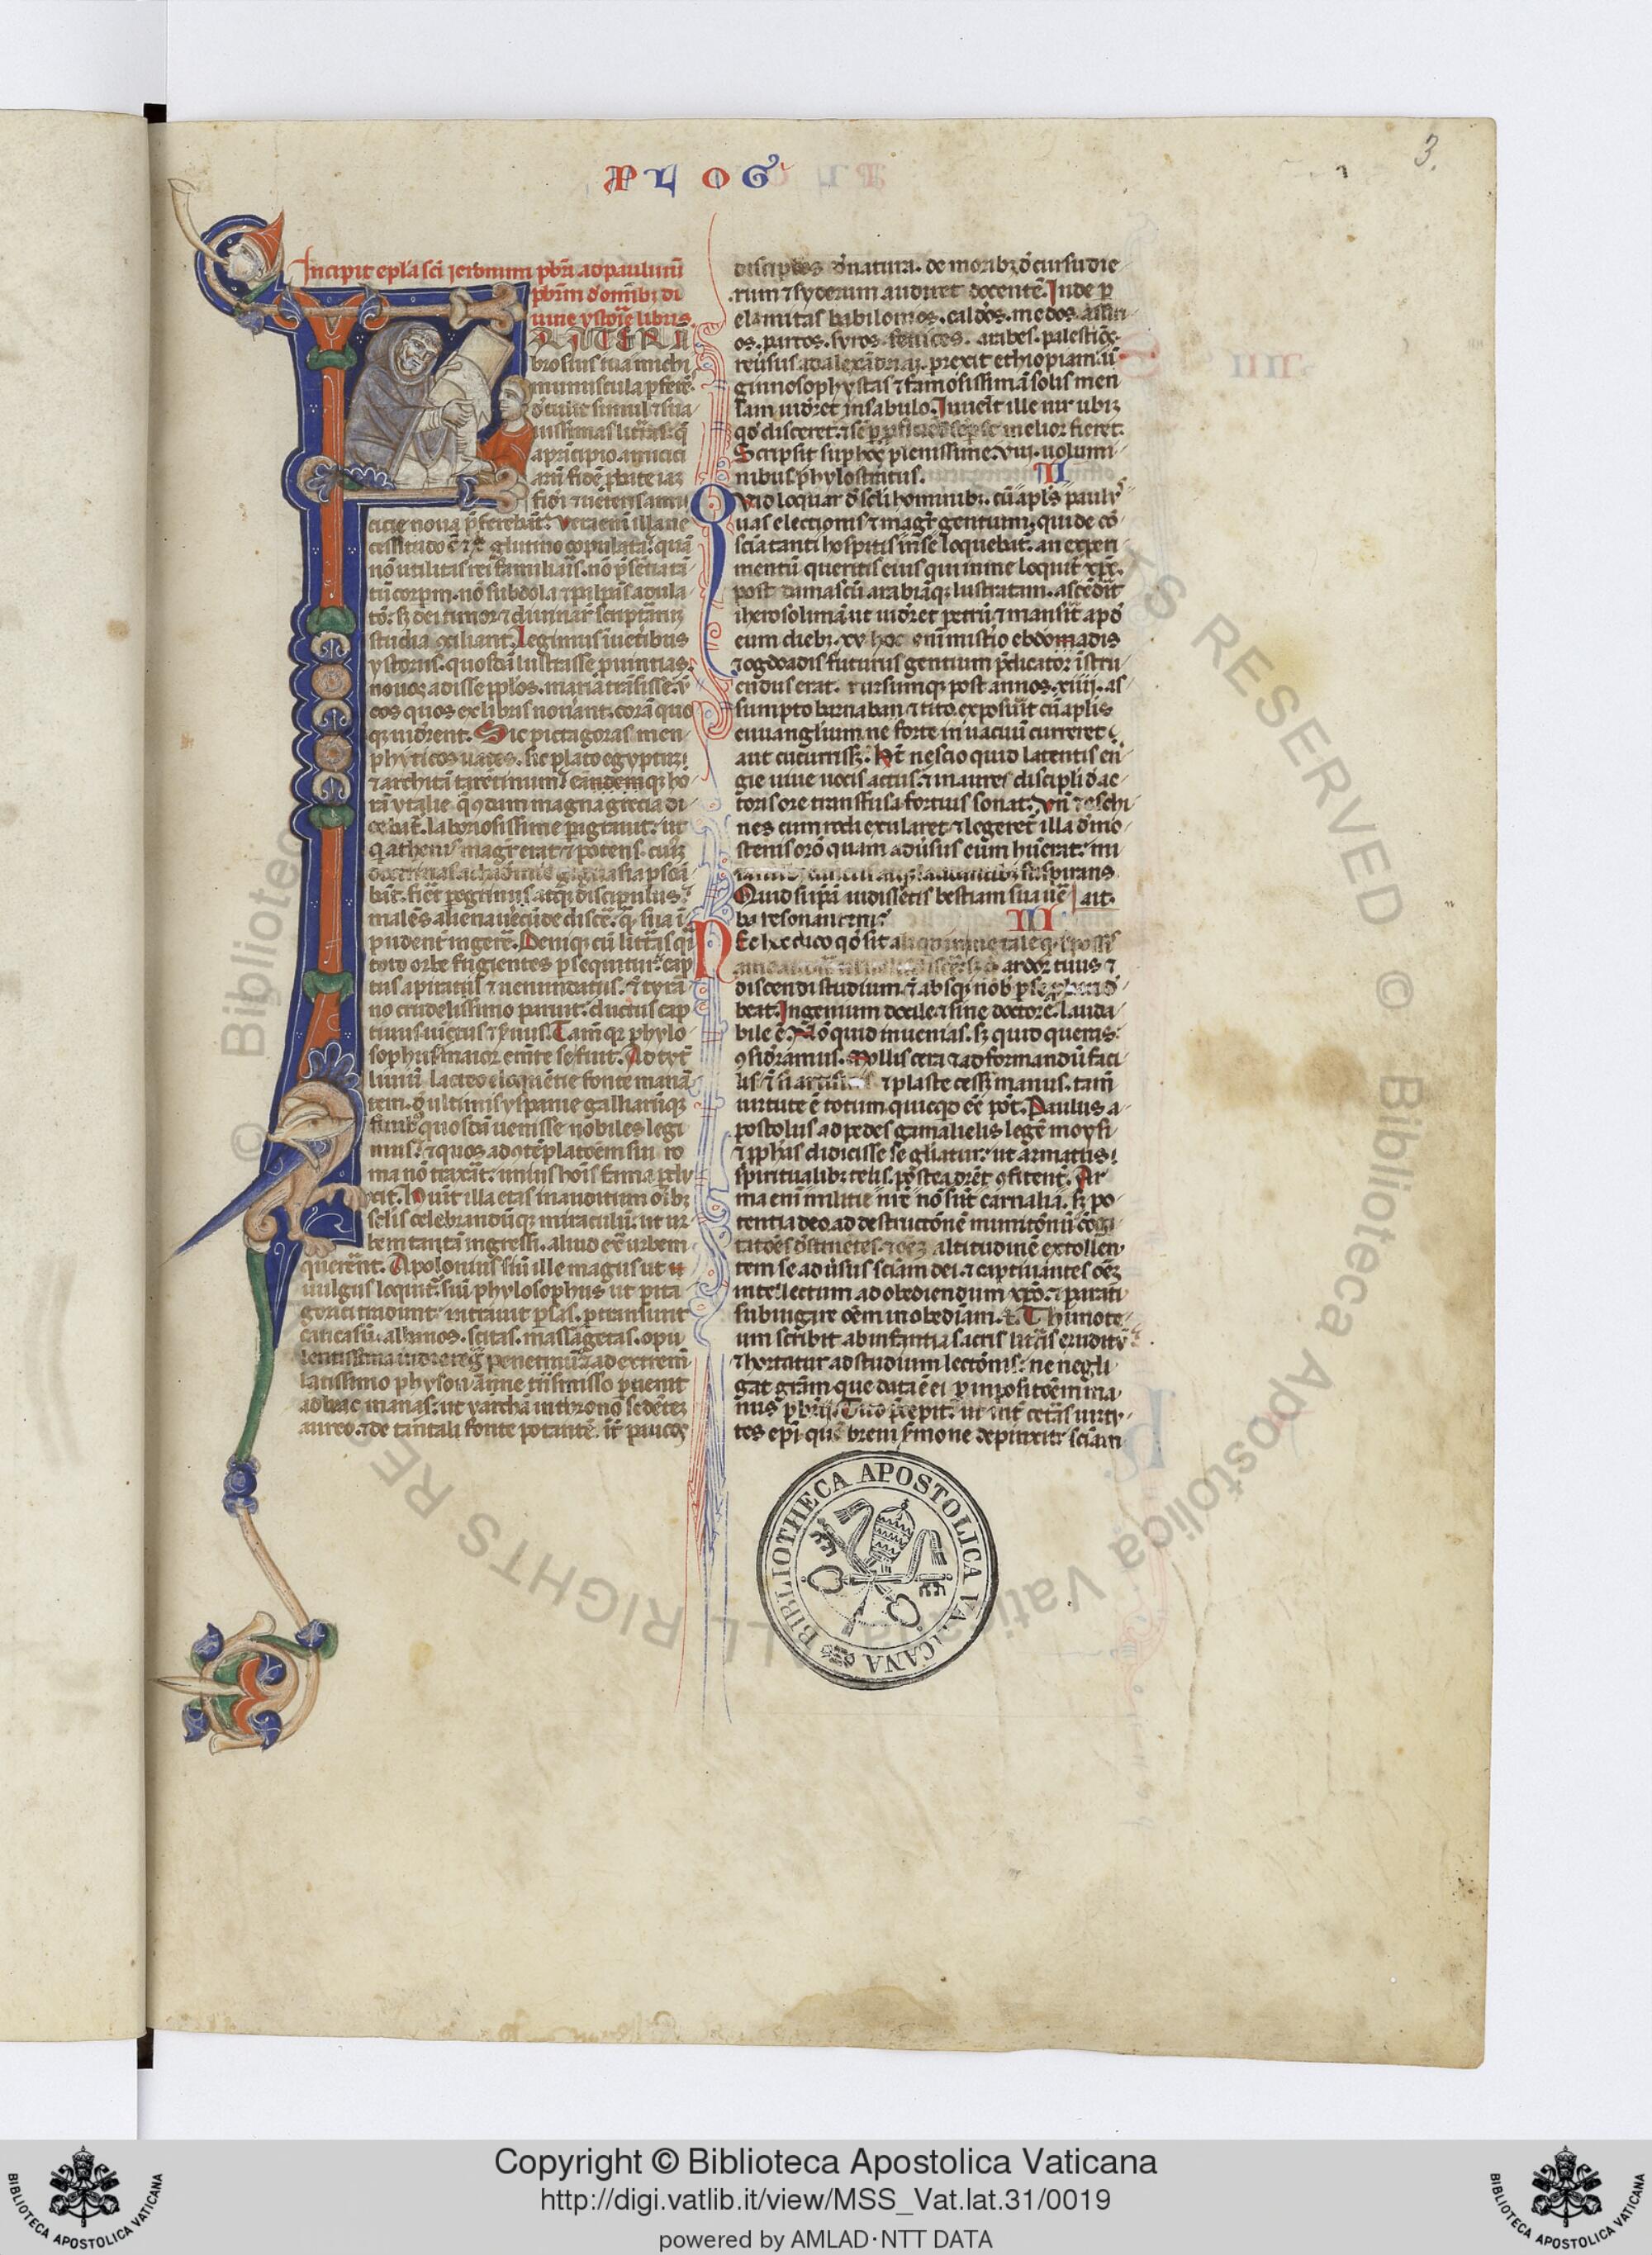 PLOG
3.
Incipit epl'a sci ieronimi pbri ad paulinū
pbrm d' omib; di
uine ystorie libris
RATER A
brosius tua michi
munuscula pferēs
detulit simul & sua
uissimas litt'as q̄
a principio amicici
arū fidē pbate iaz
fidei & ueteris ami
cicie noua p̄ferebāt. Vera eni illa ne
cessitudo ē & xp̄i glutino copulata quā
nō utilitas rei familiaris. nō p̄sentia tā
tū corpm. nō subdola & palpās adula
tō. s; dei timor & diuinar̄ scripturarū
studia 9ciliant. Legimus ī uetibus
ystoriis. quosdā lustrasse puintias.
nouos adisse pplos. maria trāsisse. ut
eos quos ex libris nouant. corā quo
q; uiderent. Sic pictagoras men
phyticos uates. sic plato egyptum
& architā tarētinum eandemq; ho
rā ytalie q̄ 9dam magna grecia di
cebat. laboriosissime pigrauit. ut
q̄ athenis magr̄ erat & potens. cuiꝰ
doctrinas achademie gignasia psōa
bāt. fieret pegrinus atq; discipulus.
malens aliena uerecūde discē. q̄ sua ī
pudenter ingerē. Deniq; cū litt'as q̄si
toto orbe fugientes psequitur. cap
tus a piratis & uenundatus. & tyrā
no crudelissimo paruit. ductus cap
tiuus uictus & s̄uus. Tam̄ q̄r phylo
sophus maior emēte se fuit. Ad tytū
liuiū lacteo eloquētie fonte manā
tem. d' ultimis yspanie galliarūq;
finib; quosdā uenisse nobiles legi
mus. & quos ad 9tēplatōem sui ro
ma nō traxāt. unius hoīs fama pdu
xit. Habuit illa etas inauditum oīb;
seclis celebrandūq; miraculū. ut ur
bem tantā ingressi. aliud ex̄ urbem
quererēt. Apolonius siū ille magus ut
uulgus loquit̄. siū phylosophus ut pita
gorici tradunt. intrauit psas. ptransiuit
caucasū. albanos. scitas. massagetas. opu
lentissima indie regna penetrauit & ad extremū
latissimo physon amne trāsmisso puenit
ad bracmanas. ut yarchā in throno sedētez
aureo. & de tantali fonte potantē. īt̄ paucos
discipulos d' natura. de morib; d' cursu die
rum & syderum audiret docentē. Inde p
elamitas babilonios. caldeos. medos. assiri
os. partos. syros. fenices. arabes. palestios.
reuersus ad alexādriā. prexit ethiopiam. ut
gimnosophystas & famosissimā solis men
sam uideret in sabulo. Inuenit ille uir ubiq;
qd' disceret. & semp pficiens semp se melior fieret.
Scripsit sup hoc plenissime. viii. uolumi
nibus phylostratus. II
Quid loquar d' scli hominib;. cū apl's paulꝰ
uas electionis & magr̄ gentium. qui de cō
sciā tanti hospitis in se loquebat̄. an experi
mentū queritis eius qui in me loquit̄ xp̄c.
post damascū arabiāq; lustratam. ascēdit
iherosolimā ut uideret petrū & mansit apd'
eum dieb;. xv. hoc eni misterio ebdomadis
& ogdoadis futurus gentium p̄dicator īstru
endus erat. rursumq; post annos. xiiii. as
sumpto barnaba & tito. exposuit cū aplis
euuanglium. ne forte in uacuū curreret
aut cucurrisset. Ht̄ nescio quid latentis en
gie uiue uocis actus. & in aures discipli d' ac
toris ore transfusa fortius sonat. Vn̄ & eschi
nes cum rodi exularet. & legeret̄ illa d'mo
stenis orō quam aduersus eum habuerat. mi
rantib; cunctis atq; laudantib; suspirans
Quid si ip̄am audissetis bestiam sua ūe | ait.
ba resonantem. III
Nec hec dico qd' sit aliquid in me tale q̄ possis
ardor tuus &
discendi studium. & absq; nob p se p̄bari d'
beat. Ingenium docile & sine doctore lauda
bile ē. Nō quid inuenias. s; quid queras.
9sideramus. Mollis cera & ad formandū faci
lis & si artificis & plaste cess; manus. tam̄
uirtute ē totum quicqd' ee pōt. Paulus a
postolus ad pedes gamalielis legē moysi
& pphās didicisse se gliatur. ut armatus
spiritualib; telis. postea dicēt 9fitent̄. Ar
ma eni militie nr̄e nō sūt carnalia. s; po
tentia deo. ad destructionē munitionū cogi
tatōes d'struētes. & oēz altitudinē extollen
tem se aduersus sciam dei. & captiuantes oēz
intellectum ad obediendum xp̄o. & parati
subiugare oēm inobediam. &. Thimote
um scribit ab infantia sacris litt'is eruditū
& hortatur ad studium lectōnis. ne negli
gat grām que data ē ei p impositōem ma
nus pbrii. Tito p̄cepit. ut int̄ cet'as uirtu
tes epi. quē breui s̄mone depinxit. sciam
BIBLIOTHECA APOSTOLICA VATICANA
© Biblioteca Apostolica Vaticana ALL RIGHTS RESERVED © Biblioteca
Copyright © Biblioteca Apostolica Vaticana
http://digi.vatlib.it/view/MSS_Vat.lat.31/0019
powered by AMLAD·NTT DATA
BIBLIOTECA APOSTOLICA VATICANA
BIBLIOTECA APOSTOLICA VATICANA